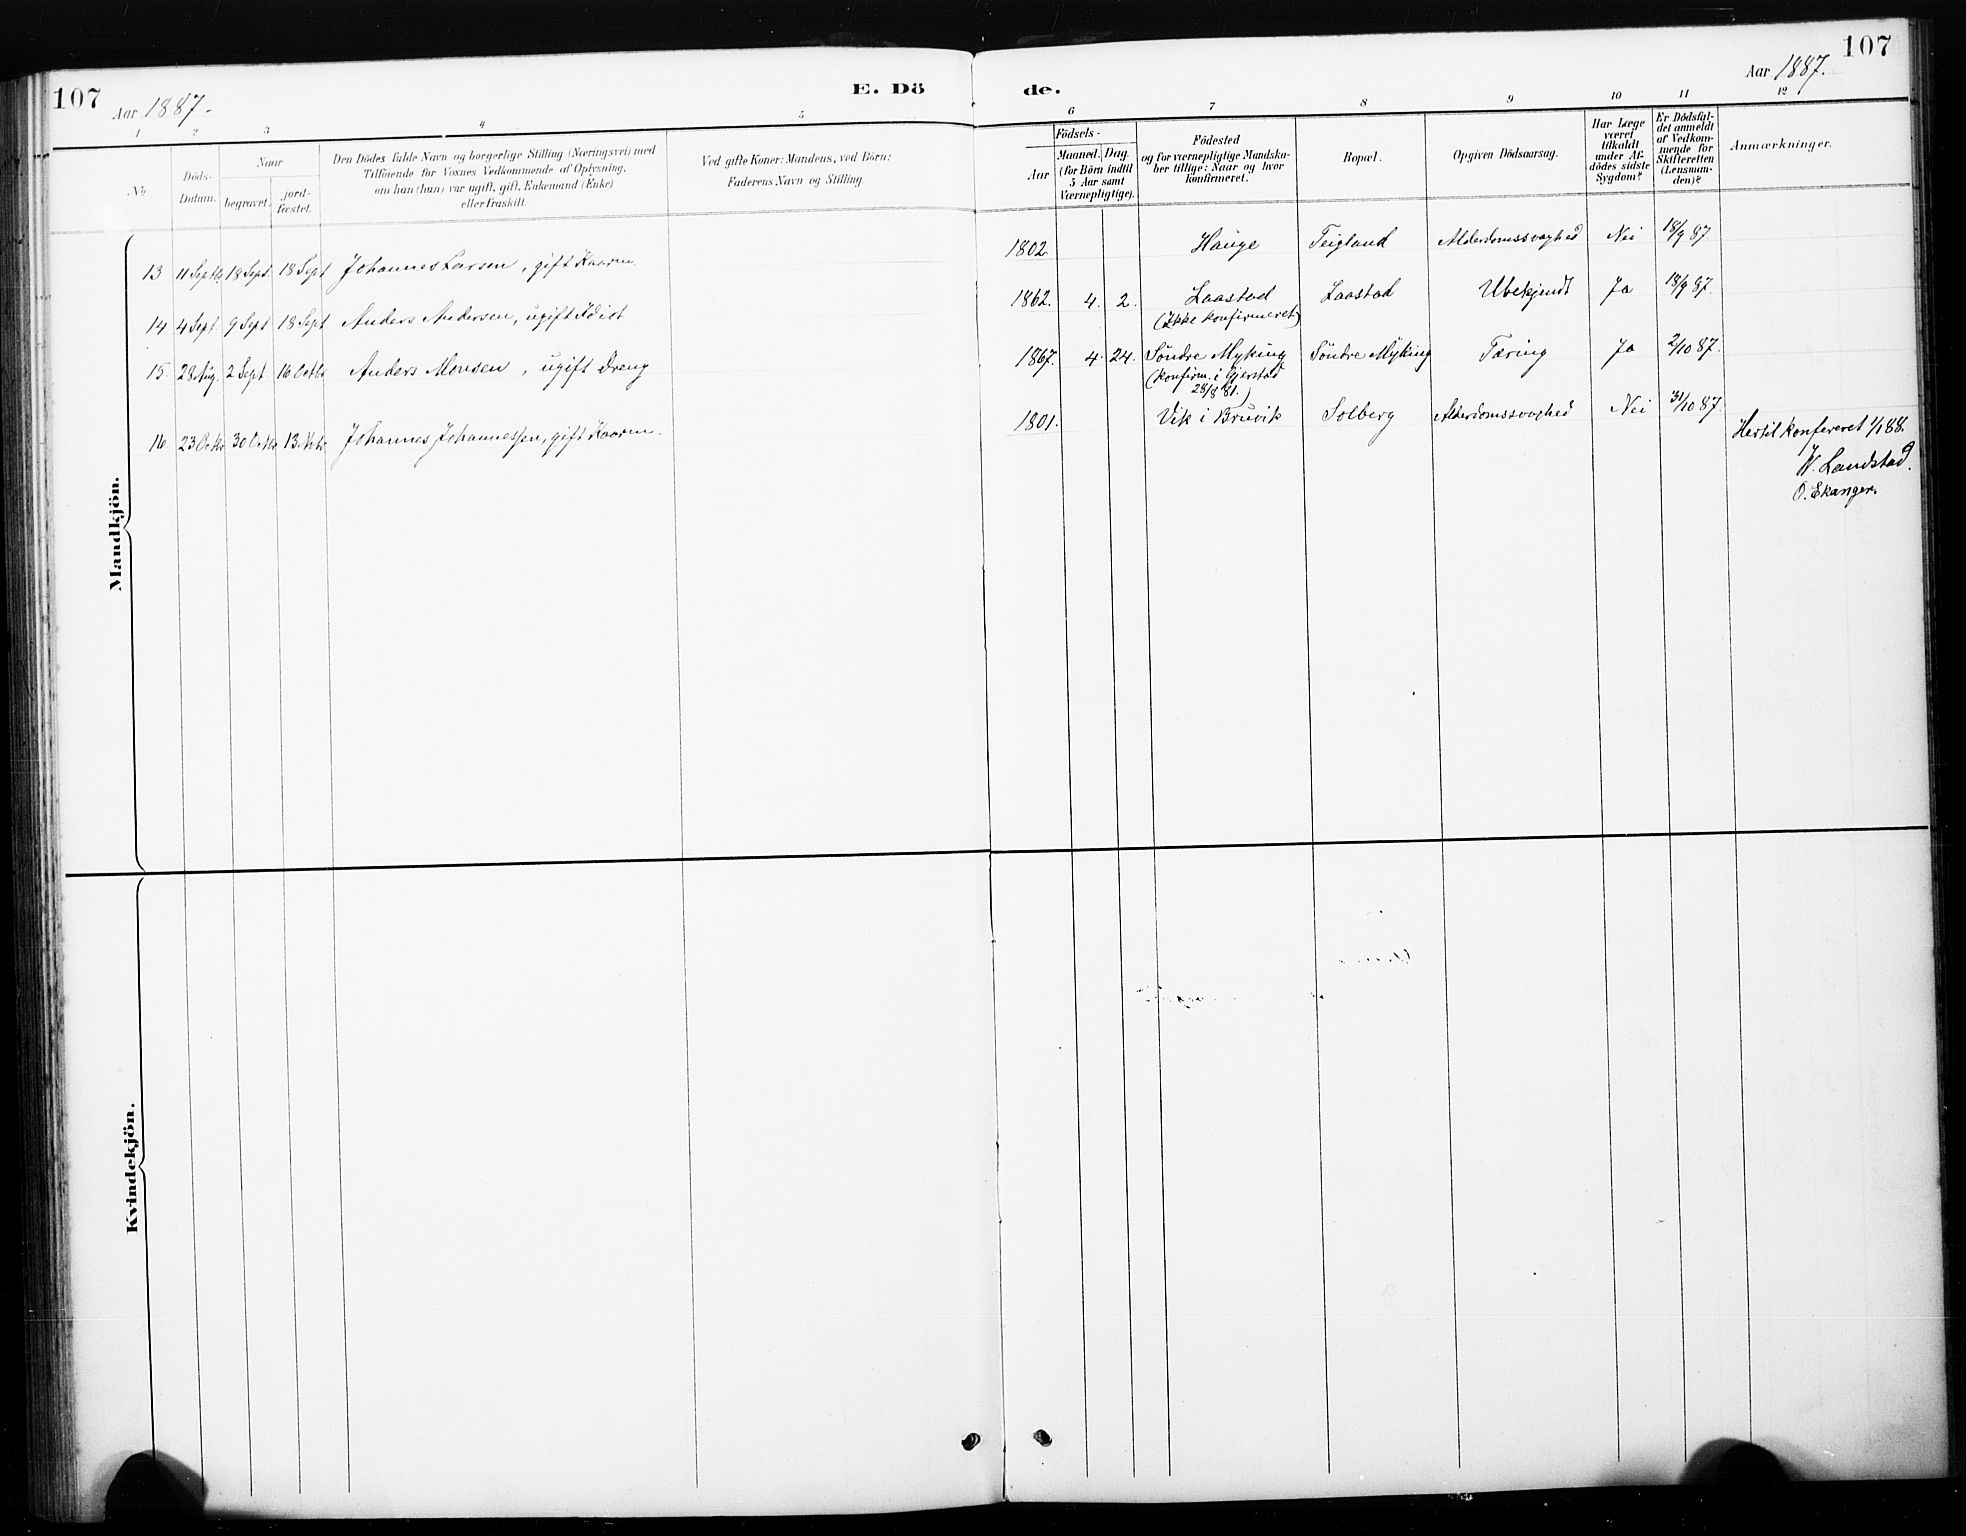 107
Aar 1887.
E. Dö
de.
Aar 1887.
107
1 2 3 4 5 6 7 8 9 10 11 12
No
Döds-
Datum.
Naar
begravet.
jord-
fæstet.
Den Dödes fulde Navn og borgerlige Stilling (Næringsvei) med
Tilföiende for Voxnes Vedkommende af Oplysning,
om han (hun) var ugift, gift, Enkemand (Enke)
eller fraskilt.
Ved gifte Koner: Mandens, ved Börn:
Faderens Navn og Stilling.
Födsels-
Aar
Maaned. Dag.
(for Börn indtil
5 Aar samt
Værnepligtige).
Födested
og for værnepligtige Mandska-
ber tillige: Naar og hvor
konfirmeret.
Bopæl.
Opgiven Dödsaarsag.
Har Læge
været
tilkaldt
under Af-
dödes sidste
Sygdom?
Er Dödsfal-
det anmeldt
af Vedkom-
mende for
Skifteretten
(Lensman-
den)?
Anmærkninger.
Mandkjön.
13 11 Septbr 18 Sept. 18 Sept Johannes Larsen, gift Kaarm. 1802. Hauge Teigland Alderdomssvaghed Nei 18/9 87
14 4 Sept. 9 Sept 18 Sept Anders Andersen, ugift Idiot 1862. 4. 2. Laastad Laastad Ubekjendt Ja 18/9 87.
(Ikke konfirmeret)
15. 28 Aug. 2 Sept 16 Octbr Anders Monsen, ugift Dreng 1867. 4. 24. Søndre Myking Søndre Myking Tæring Ja 2/10 87.
(konfirm. i Gjerstad
28/8 81.)
16. 23 Octbr 30 Octbr 13. Nvbr Johannes Johannessen, gift Kaarm. 1801. Vik i Bruvik Solberg Alderdomssvaghed Nei 31/10 87.
Hertil konfereret 1/1 88.
W. Landstad.
O. Ekanger.
Kvindekjön.